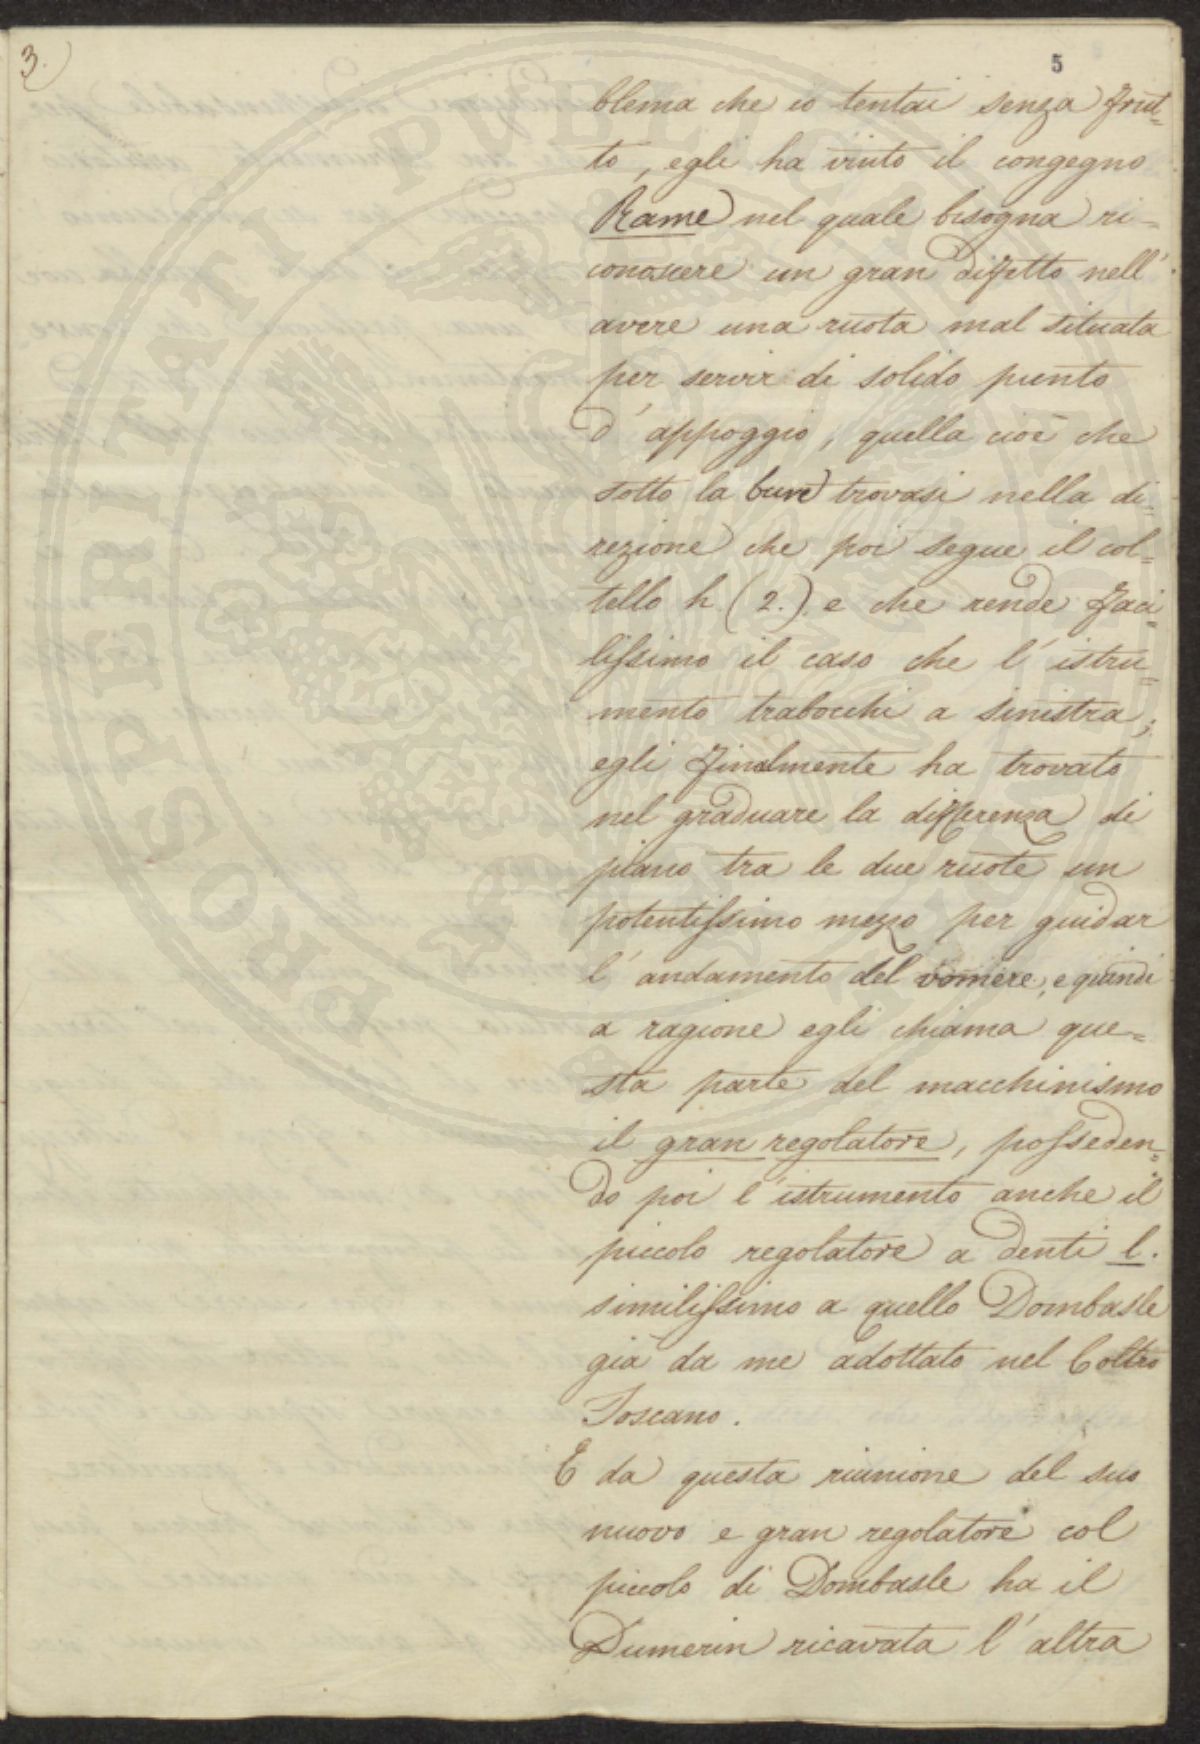 3.
5
blema che io tentai senza frut=
to, egli ha vinto il congegno
Rame nel quale bisogna ri=
conoscere un gran diffetto nell'
avere una ruota mal situata
per servir di solido punto
d'appoggio, quella cioè che
sotto la bure trovasi nella di=
rezione che poi segue il col=
tello h. (2.) e che rende faci=
lissimo il caso che l'istru=
mento trabocchi a sinistra;
egli finalmente ha trovato
nel graduare la differenza di
piano tra le due ruote un
potentissimo mezzo per guidar
l'andamento del vomere, e quindi
a ragione egli chiama que=
sta parte del macchinismo
il gran regolatore, posseden=
do poi l'istrumento anche il
piccolo regolatore a denti l.
similissimo a quello Dombasle
già da me adottato nel Coltro
Toscano.
E da questa riunione del suo
nuovo e gran regolatore col
piccolo di Dombasle ha il
Dumerin ricavata l'altra
PROSPERITATI PUBLICAE